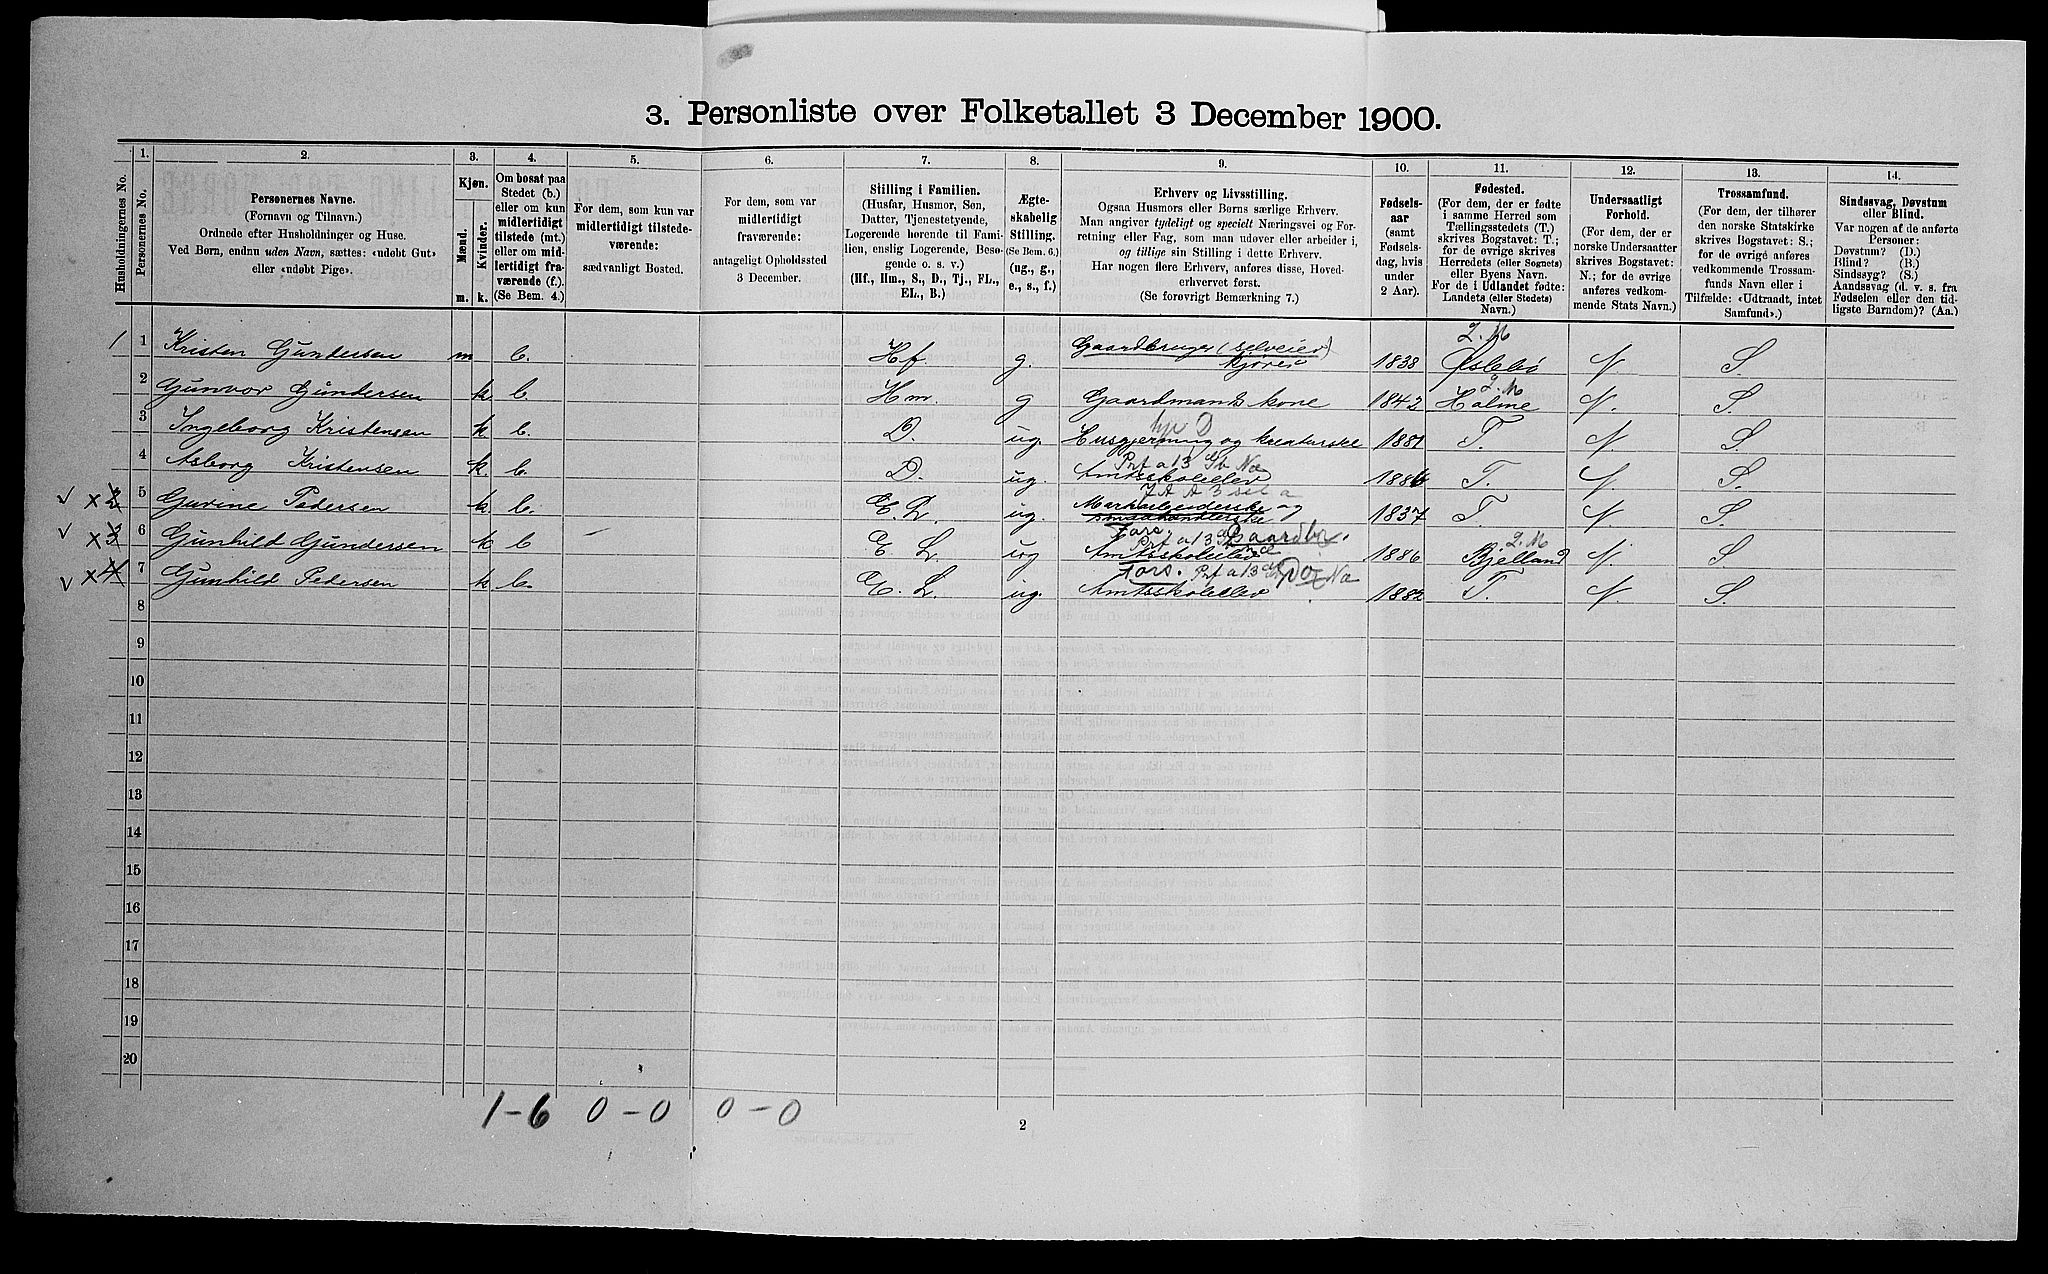 3. Personliste over Folketallet 3 December 1900.
Husholdningernes No.
1. Personernes No.
2. Personernes Navne.
(Fornavn og Tilnavn.)
Ordnede efter Husholdninger og Huse.
Ved Børn, endnu uden Navn, sættes: «udøbt Gut»
eller «udøbt Pige».
3. Kjøn.
Mænd. Kvinder.
m. k.
4. Om bosat paa
Stedet (b.)
eller om kun
midlertidigt
tilstede (mt.)
eller om mid-
lertidigt fra-
værende (f.).
(Se Bem. 4.)
5. For dem, som kun var
midlertidigt tilstede-
værende:
sædvanligt Bosted.
6. For dem, som var
midlertidigt
fraværende:
antageligt Opholdssted
3 December.
7. Stilling i Familien.
(Husfar, Husmor, Søn,
Datter, Tjenestetyende,
Logerende hørende til Fami-
lien, enslig Logerende, Besø-
gende o. s. v.)
(Hf., Hm., S., D., Tj., FL.,
EL., B.)
8. Ægte-
skabelig
Stilling.
(Se Bem. 6.)
(ug., g.,
e., s., f.)
9. Erhverv og Livsstilling.
Ogsaa Husmors eller Børns særlige Erhverv.
Man angiver tydeligt og specielt Næringsvei og For-
retning eller Fag, som man udøver eller arbeider i,
og tillige sin Stilling i dette Erhverv.
Har nogen flere Erhverv, anføres disse, Hoved-
erhvervet først.
(Se forøvrigt Bemærkning 7.)
10. Fødsels-
aar
(samt
Fødsels-
dag, hvis
under
2 Aar).
11. Fødested.
(For dem, der er fødte
i samme Herred som
Tællingsstedets (T.)
skrives Bogstavet: T.;
for de øvrige skrives
Herredets (eller Sognets)
eller Byens Navn.
For de i Udlandet fødte:
Landets (eller Stedets)
Navn.)
12. Undersaatligt
Forhold.
(For dem, der er
norske Undersaatter
skrives Bogstavet:
N.; for de øvrige
anføres vedkom-
mende Stats Navn.)
13. Trossamfund.
(For dem, der tilhører
den norske Statskirke
skrives Bogstavet: S.;
for de øvrige anføres
vedkommende Trossam-
funds Navn eller i
Tilfælde: «Udtraadt, intet
Samfund».)
14. Sindssvag, Døvstum
eller Blind.
Var nogen af de anførte
Personer:
Døvstum? (D.)
Blind? (B.)
Sindssyg? (S.)
Aandssvag (d. v. s. fra
Fødselen eller den tid-
ligste Barndom)? (Aa.)
1 1 Kristen Gundersen m b. Hf. g. Gaardbruger (Selveier) 1838 2. M Øslebø N. S.
2 Gunvor Gundersen k b. Hm. g Gaardmands kone 1842 2. M Holme N. S.
3 Ingeborg Kristensen k b. D. ug. Husgjerning og kreaturske 1881 T. N. S.
4 Asborg Kristensen k b. D. ug. Amtsskoleelev 1886 T. N. S.
v x 2 5 Gurine Pedersen k b. E. L. ug. Markarbeiderske og 1837 T. N. S.
v x 3 6 Gunhild Gundersen k b E L. ug Amtsskoleelev 1886 2. M Bjelland N. S
v x 4 7 Gunhild Pedersen k b. E. L. ug. Amtsskoleelev 1882 T. N. S.
8
9
10
11
12
13
14
15
16
17
18
19
20
1-6 0-0 0-0
2